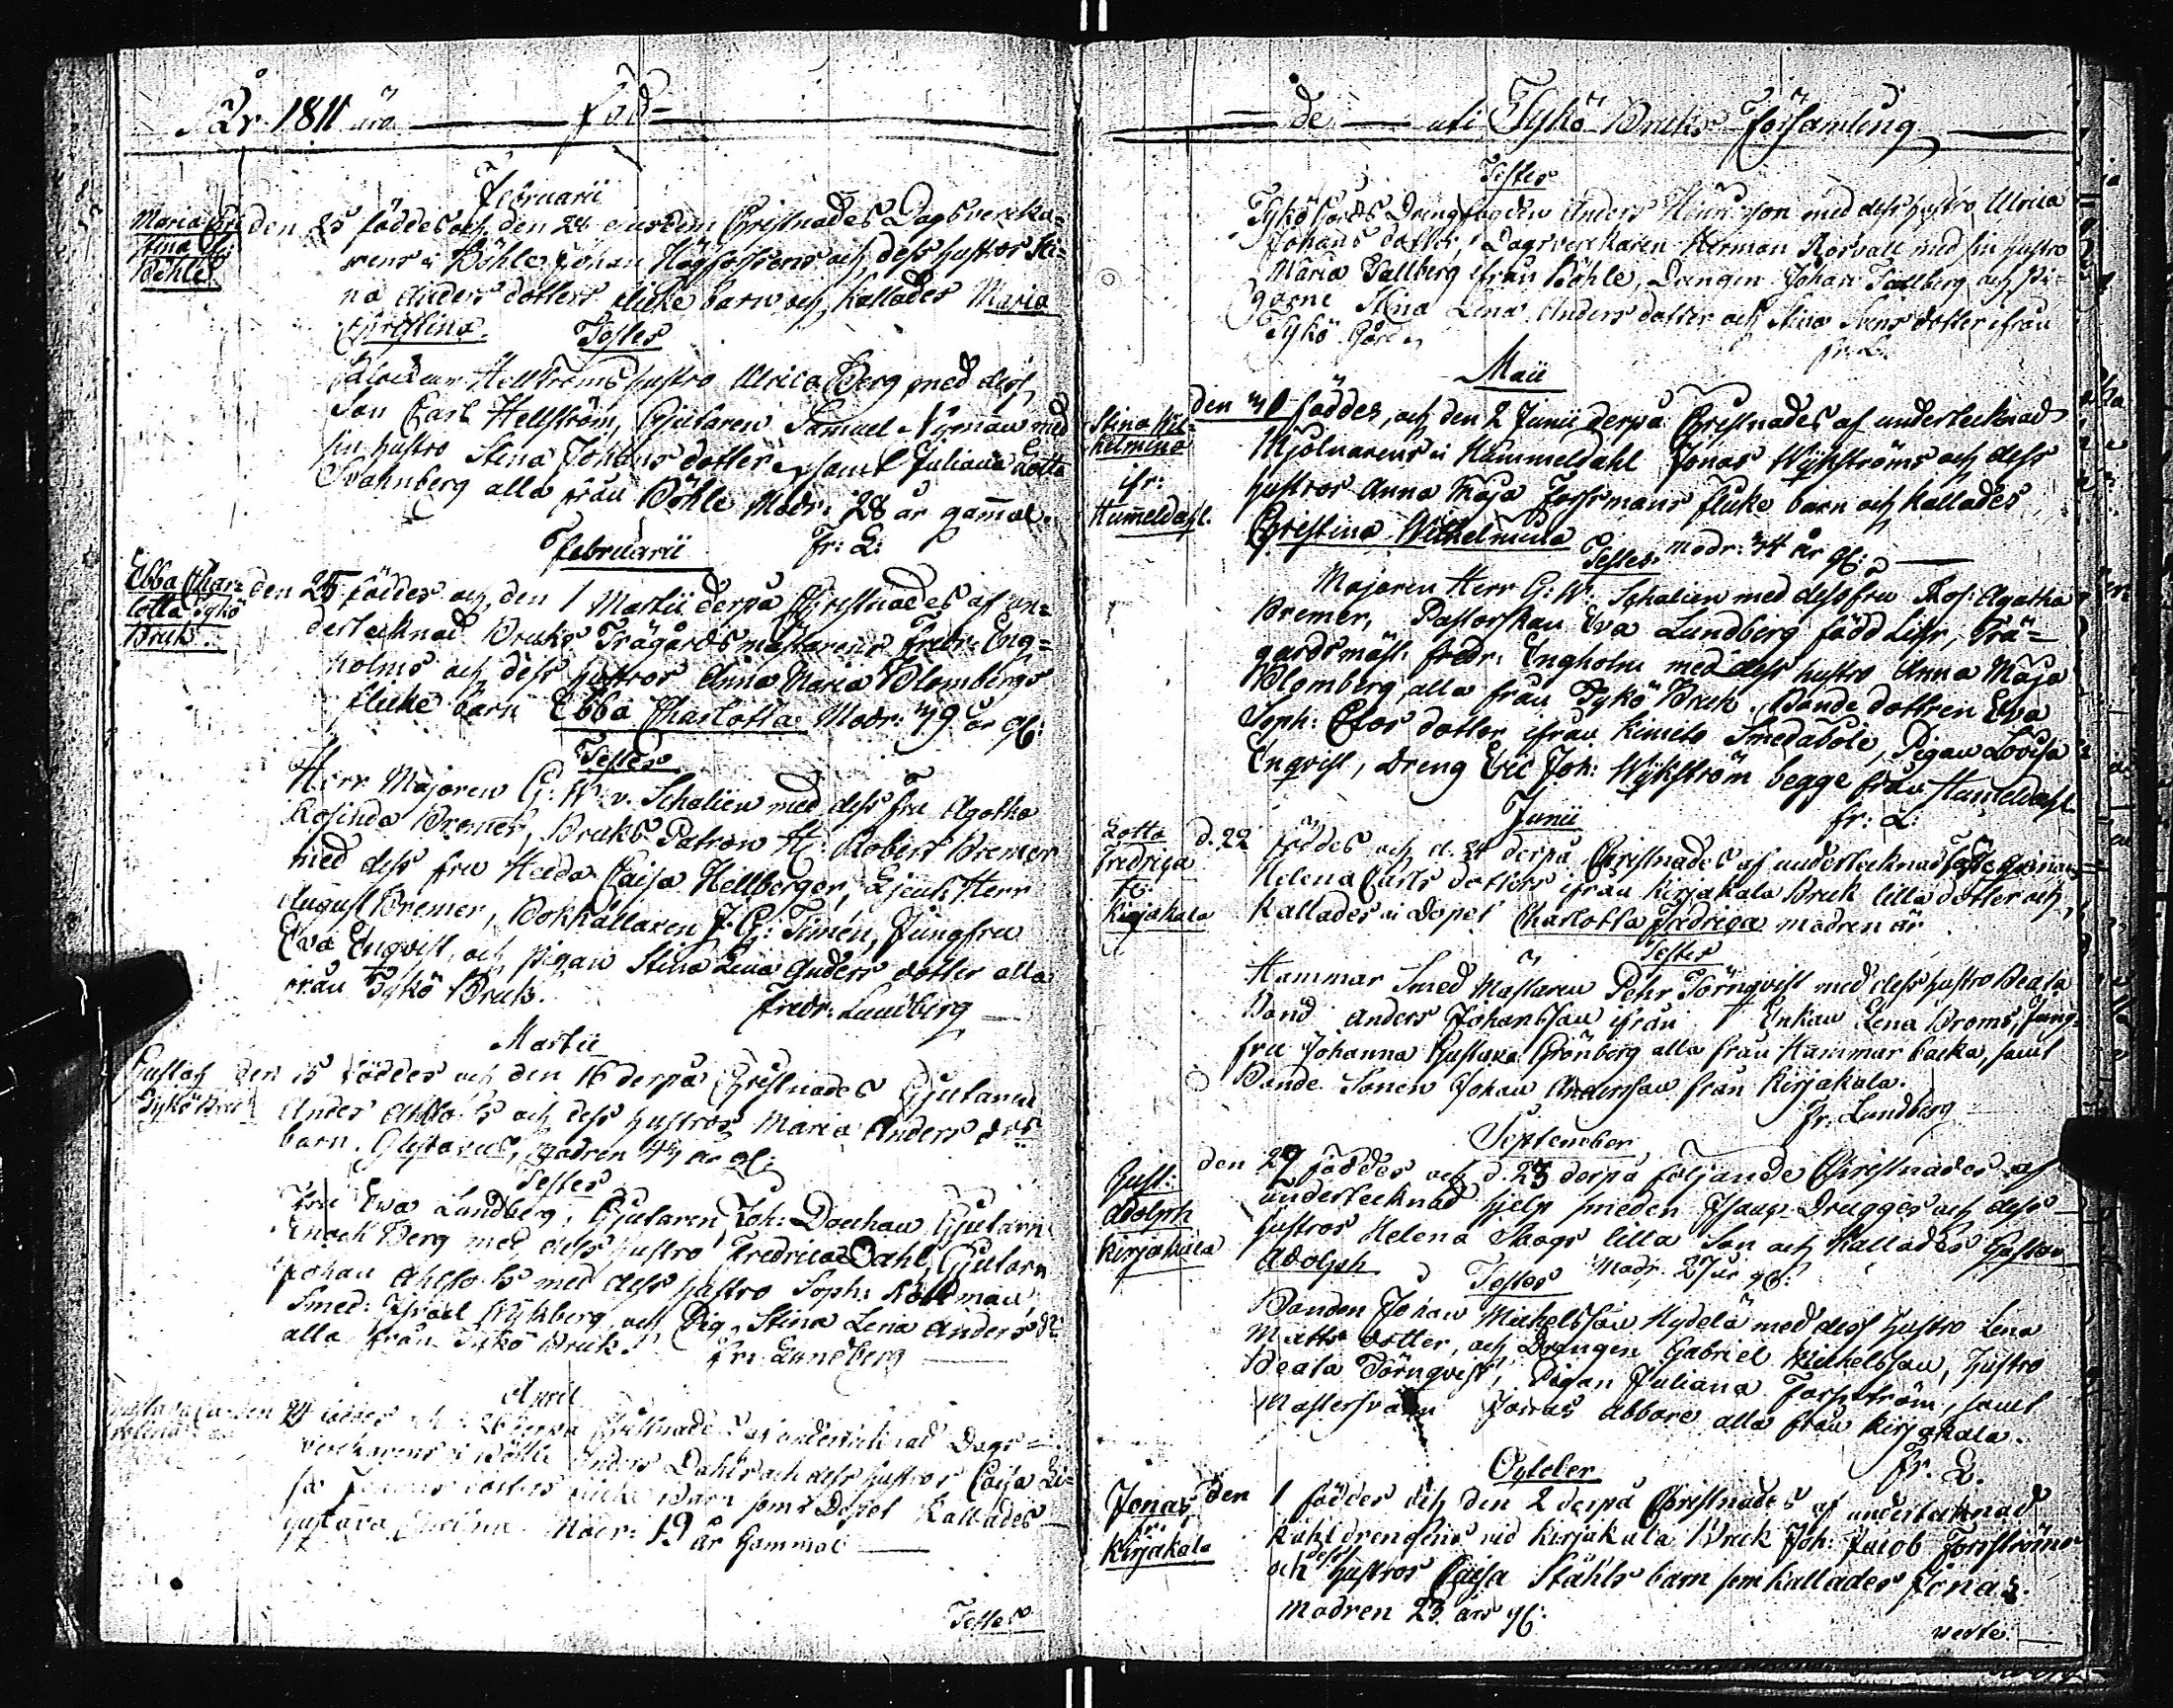 År 1811 äro föd-
Februarii
Maria Chri
stina fr:
Böhle
den 25 föddes och den 28 ejusdem Christnades Dagsverka-
rens i Böhle Johan Högforssens och dess hustros Sti-
na Anders dotters flicke barn och kallades Maria
Christina. Testes
Hellströms hustro Ulrica Berg med dess
Son Carl Hellström, Gjutaren Samuel Nyman med
sin hustro Stina Johans dotter samt Juliana Lotta
Svahnberg alla från Böhle Modr: 28 år gammal.
Fr: L:
Februarii
Ebba Char-
lotta Tykö
Bruk.
den 25 föddes och den 1 Martii derpå Christnades af un-
dertecknad Bruks Trägårdsmästarens Fredr: Eng-
holms och dess hustros Anna Maria Blombergs
flicke barn Ebba Charlotta Modr: 39 år gl:
Testes
Herr Majoren G: W: v. Schalien med dess fru Agatha
Rosinda Bremer, Bruks Patron H: Robert Bremer
med dess fru Hedda Caisa Hellberger, Lieut: Herr
August Bremer, Bokhållaren J: G: Timén, Jungfru
Eva Enqvist, och Pigan Stina Lena Anders dotter alla
från Tykö Bruk.
Fredr: Lundberg
Martii
Gustaf
Tykö Bruk
den 15 föddes och den 16 derpå Christnades Gjutaren
Anders och dess hustros Maria Anders drs
barn. Gustavus, modren 43 år gl:
Testes
Fru Eva Lundberg, Gjutaren Joh: Gjutarn
Enoch Berg med dess hustro Fredrica Dahl, Gjutarn
Johan med dess hustro Soph:
Smed: Israel Nykberg och Pig. Stina Lena Anders dr
alla från Tykö Bruk.
Fr: Lundberg
April
Gustava Ca-
rolina
den 24 föddes och d. 26 derpå Christnades af undertecknad Dags-
verkarens i Böhle Anders Dahls och dess hustros Caisa Li-
sa dotters flicke Barn som i Döpet kallades
Gustava Carolina Modr: 19 år Gammal
Testes
de uti Tykö Bruks Församling
Testes
Tykö Gårds Drengfogden Anders Hinricson med dess hustro Ulrica
Johans dotter, Dagsverckaren Herman Rosvall med sin hustro
Maria Vallberg ifrån Böhle, Drengen Johan Tallberg och Pi-
gorne Stina Lena Anders dotter och Stina Svens dotter ifrån
Tykö Gård
Fr: L:
Maii
Stina Wil-
helmina
ifr:
Hummeldahl.
den 30 föddes, och den 2 Junii derpå Christnades af undertecknad
Mjölnarens i Hummeldahl Jonas Wykströms och dess
hustros Anna Maja Forssmans flicke barn och kallades
Christina Wilhelmina modr: 34 år gl:
Testes
Majoren Herr G: W: Schalien med dess fru Ros: Agatha
Bremer, Pastorskan Eva Lundberg född Lihr, Trä-
gårdsmäst: Fredr: Engholm med dess hustro Anna Maja
Blomberg alla från Tykö Bruk, Bonde dottren Eva
Soph: Elos dotter ifrån Kimito Smedaböle, Pigan Lovisa
Enqvist, Dreng Eric Joh: Wykström begge från Hummeldahl
Fr: L:
Junii
Lotta
Fredrica
fr:
Kirjakala
d. 22 föddes och d. 24 derpå Christnades af undertecknad
Helena Carls dotters ifrån Kirjakala Bruk lilla dotter och
kallades i Dopet Charlotta Fredrica modren är
Testes
Hammar Smed Mästaren Pehr Törnqvist med dess hustro Beata
Bond Anders Johansson ifrån Enkan Lena Broms, Jung-
fru Johanna Gustava Grönberg alla från Hammar backa, samt
Bonde Sonen Johan Andersson från Kirjakala.
Fr: Lundberg
September
Gust:
Adolph
Kirjakala
den 27 föddes och d. 28 derpå följande Christnades af
undertecknad hjelp smeden Isaac Dragges och dess
hustros Helena Skogs lilla Son och kallades Gustav
Adolph Modr. 27 år gl:
Testes
Bonden Johan Mickelsson Hydelä med dess hustro Lena
Matts dotter, och Drengen Gabriel Mickelsson, hustro
Beata Törnqvist, Pigan Juliana Forsström, samt
Mästersven Jonas Abbore alla från Kirjakala.
Fr. L.
October
Jonas
fr:
Kirjakala
den 1 föddes och den 2 derpå Christnades af undertecknad
Kohldrengens vid Kirjakala Bruk Joh: Jacob Forsströms
och dess hustros Caisa Ståhls barn som kallades Jonas.
modren 23 års gl:
verte.